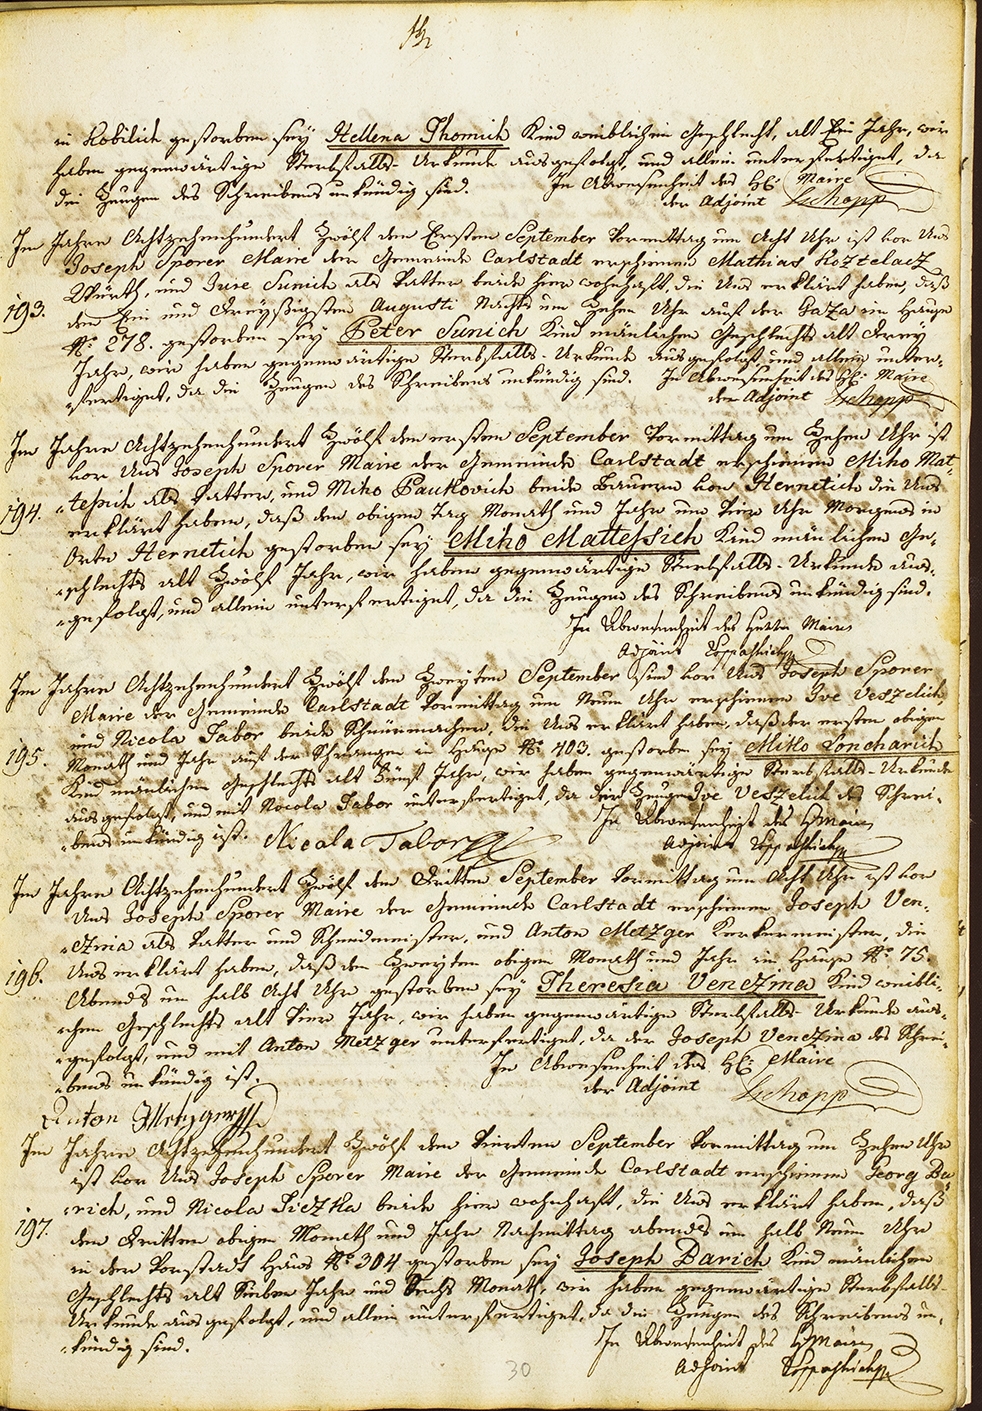 in Kobilich gestorben sey Hellena Thomich Kind weiblichen Geschlecht, alt Ein Jahr, wir
haben gegenwärtige Sterbfalls-Urkunde ausgefolgt, und allein unterfertiget, da
die Zeugen des Schreibens unkündig sind. In Abwesenheit des H: Maire
der Adjoint
Im Jahre Achtzehenhundert Zwölf den Ersten September Vormittag um Acht Uhr ist vor Uns
Joseph Sporer Maire der Gemeinde Carlstadt erschienen Mathias Koztelacz
Würth, und Jure Sunich als Vatter beide hier wohnhaft, die Uns erklärt haben, daß
193. den Ein und Dreyßigsten Augusti Nachts um Zehen Uhr auf der Gaza im Hause
No 278. gestorben sey Peter Sunich Kind mänlichen Geschlechts alt Drey
Jahr, wir haben gegenwärtige Sterbfalls-Urkunde ausgefolgt und allein unter-
fertiget, da die Zeugen des Schreibens unkündig sind. In Abwesenheit des H: Maire
der Adjoint
Im Jahre Achtzehenhundert Zwölf den ersten September Vormittag um Zehen Uhr ist
vor Uns Joseph Sporer Maire der Gemeinde Carlstadt erschienen Miko Mat-
194. tessich als Vatter, und Miko Paukovich beide Bauern von Hernetich die Uns
erklärt haben, daß den obigen Tag Monath und Jahr um Vier Uhr Morgens in
Orte Hernetich gestorben sey Miko Mattessich Kind mänlichen Ge-
schlechts alt Zwölf Jahr, wir haben gegenwärtige Sterbfalls-Urkunde aus-
gefolgt, und allein unterfertiget, da die Zeugen des Schreibens unkündig sind.
In Abwesenheit des Herrn Maire
Adjoint
Im Jahre Achtzehenhundert Zwölf den Zweyten September sind vor Uns Joseph Sporer
Maire der Gemeinde Carlstadt Vormittag um Neun Uhr erschienen Ive Veszelich,
und Nicola Tabor beide Schnürmacher, die Uns erklärt haben, daß der ersten obigen
195. Monath und Jahr auf der Schranzen in Hause No 403. gestorben sey Miko Loncharich
Kind mänlichen Geschlechts alt Fünf Jahr, wir haben gegenwärtige Sterbfalls-Urkunde
ausgefolgt, und mit Nicola Tabor unterfertiget, da der Zeuge Ive Veszelich des Schrei-
bens unkündig ist. Nicola Tabor In Abwesenheit des H Maire
Adjoint
Im Jahre Achtzehenhundert Zwölf den Dritten September Vormittag um Acht Uhr ist vor
Uns Joseph Sporer Maire der Gemeinde Carlstadt erschienen Joseph Ven-
czina als Vatter und Schneidmeister, und Anton Metzger Kerkermeister, die
196. Uns erklärt haben, daß den Zweyten obigen Monath und Jahr in Hause No 75.
Abends um halb Acht Uhr gestorben sey Theresia Venczina Kind weibli-
chen Geschlechts alt Vier Jahr, wir haben gegenwärtige Sterbfalls-Urkunde aus-
gefolgt, und mit Anton Metzger unterfertiget, da der Joseph Venczina des Schrei-
bens unkündig ist. In Abwesenheit des H: Maire
der Adjoint
Anton Metzger
Im Jahre Achtzehenhundert Zwölf den Vierten September Vormittag um Zehen Uhr
ist vor Uns Joseph Sporer Maire der Gemeinde Carlstadt erschienen Georg Ba-
rich, und Nicola Siczka beide hier wohnhaft, die Uns erklärt haben, daß
197. den Dritten obigen Monath und Jahr Nachmittag abends um halb Neun Uhr
in der Vorstadt Haus No 304 gestorben sey Joseph Barich Kind mänlichen
Geschlechts alt Sieben Jahr und Sechs Monath, wir haben gegenwärtige Sterbfalls-
Urkunde ausgefolgt, und allein unterfertiget, da die Zeugen des Schreibens un-
kündig sind. In Abwesenheit des H Maire
Adjoint
30